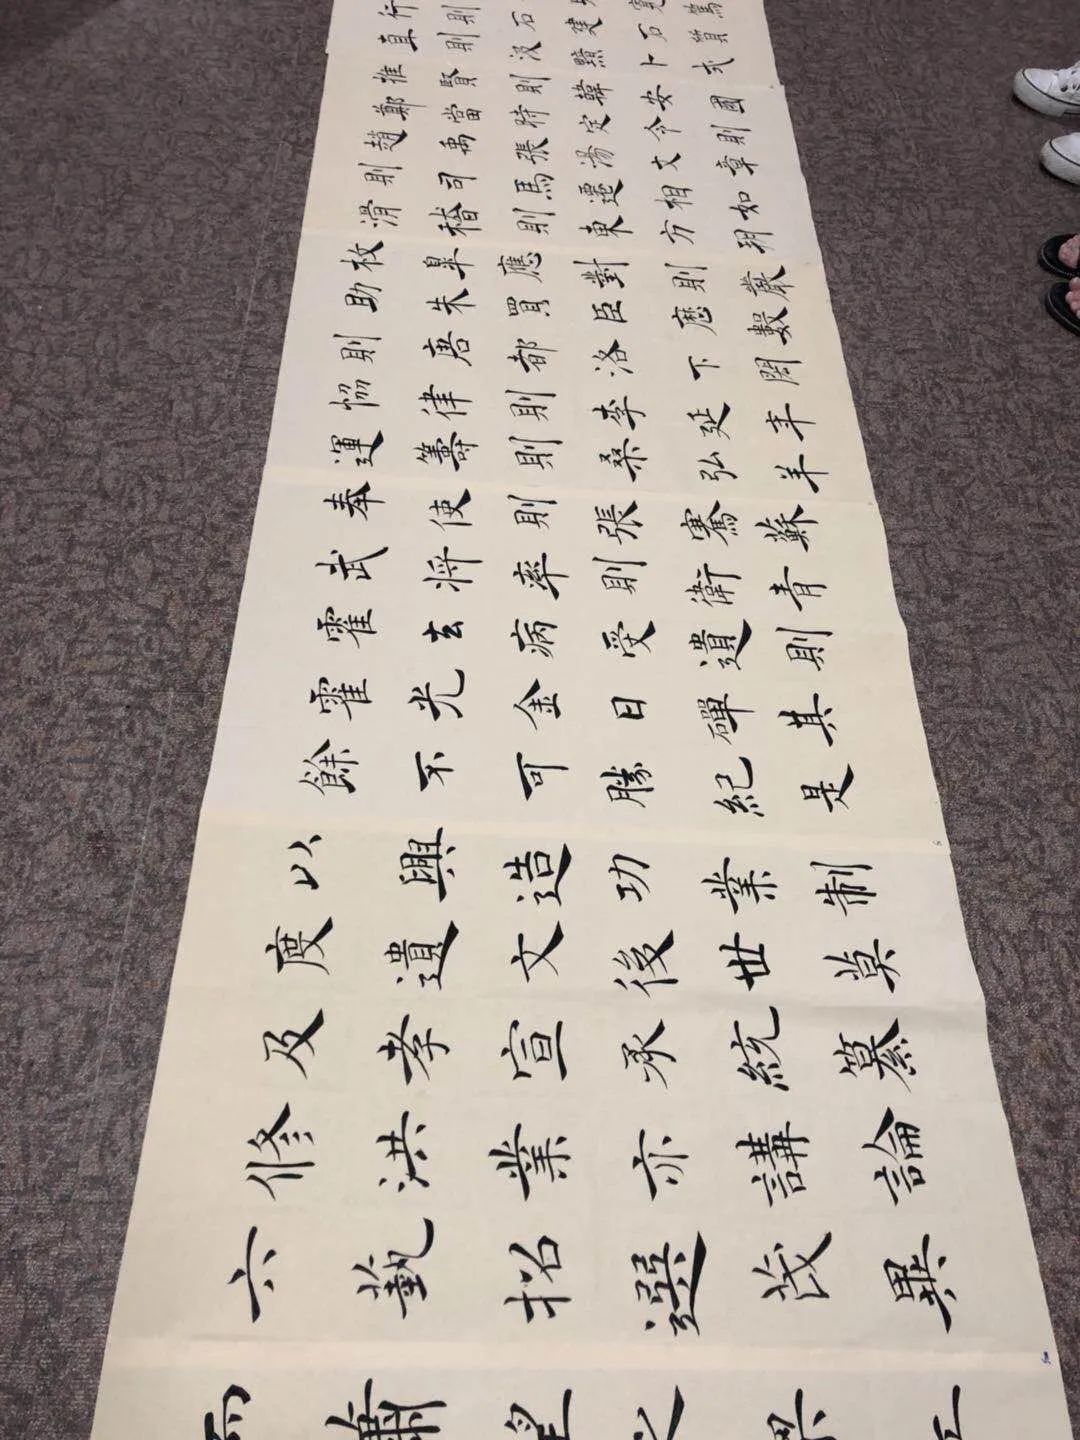 寬篤
行則石建石質
直則汲黯卜式
推賢則韓安國
鄭當時定令則
趙禹張湯文章
則司馬遷相如
滑稽則東方朔
枚皋應對則嚴
助朱買臣歷數
則唐都洛下閎
協律則李延年
運籌則桑弘羊
奉使則張騫蘇
武將率則衛青
霍去病受遺則
霍光金日磾其
餘不可勝紀是
以興造功業制
度遺文後世莫
及孝宣承統纂
修洪業亦講論
六藝招選茂異
而蕭望之梁丘